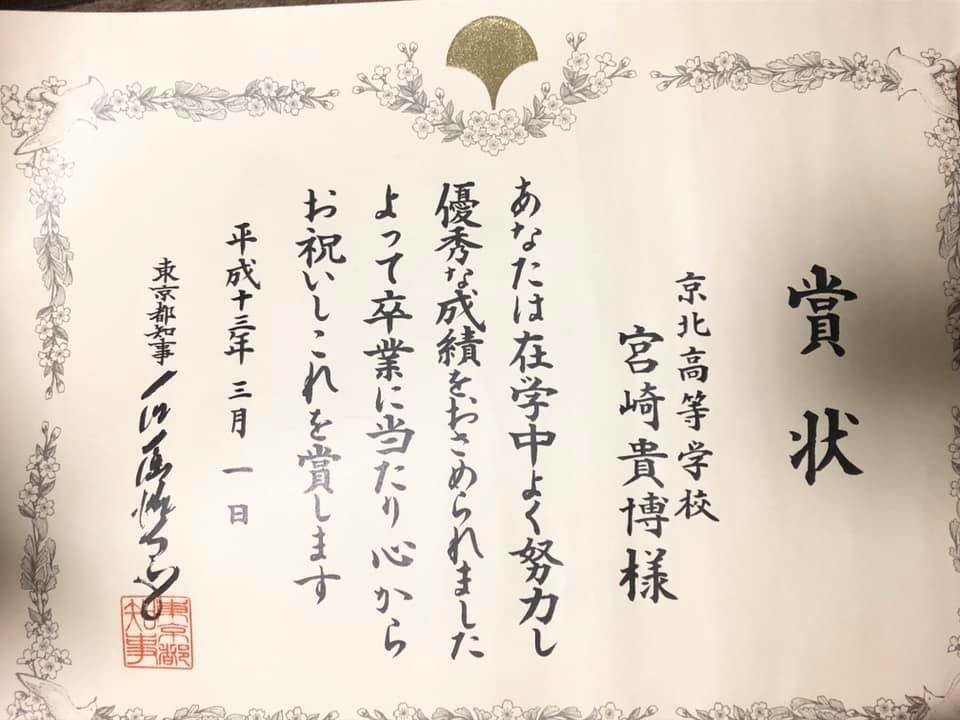 賞状
京北高等学校
宮崎貴博様
あなたは在学中よく努力し
優秀な成績をおさめられました
よって卒業に当たり心から
お祝いしこれを賞します
平成十三年三月一日
東京都知事 石原慎太郎
東京都知事